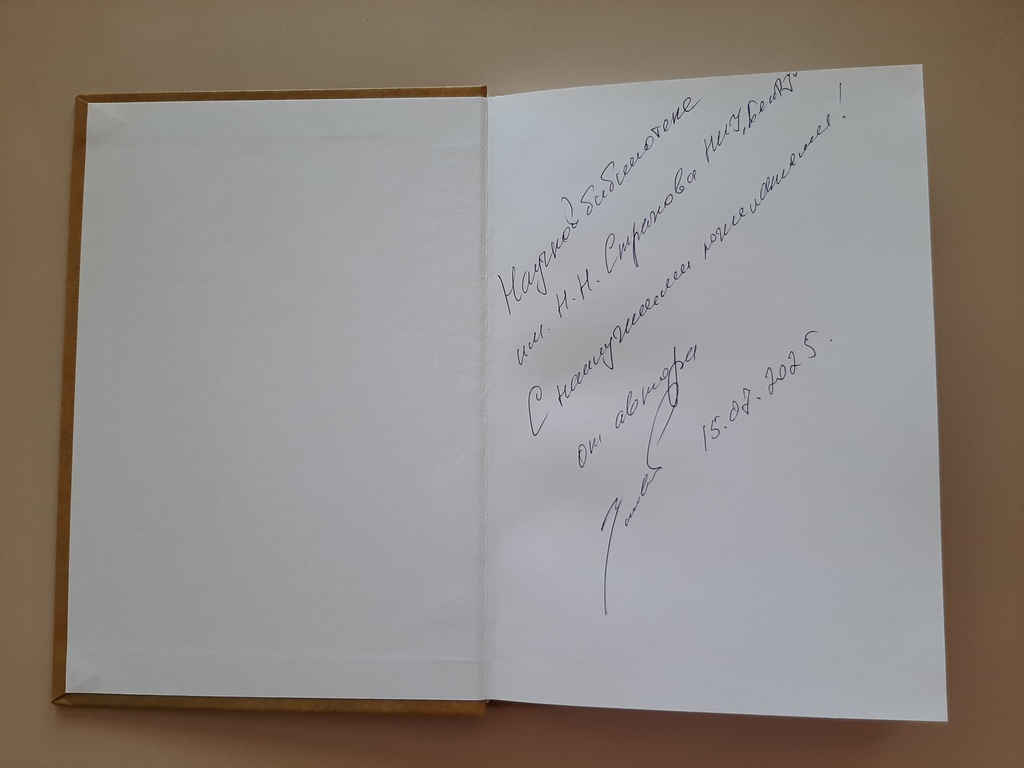 Научной библиотеке
им. Н.Н. Страхова НИУ „БелГУ"
С наилучшими пожеланиями!
от автора
15.07.2025.